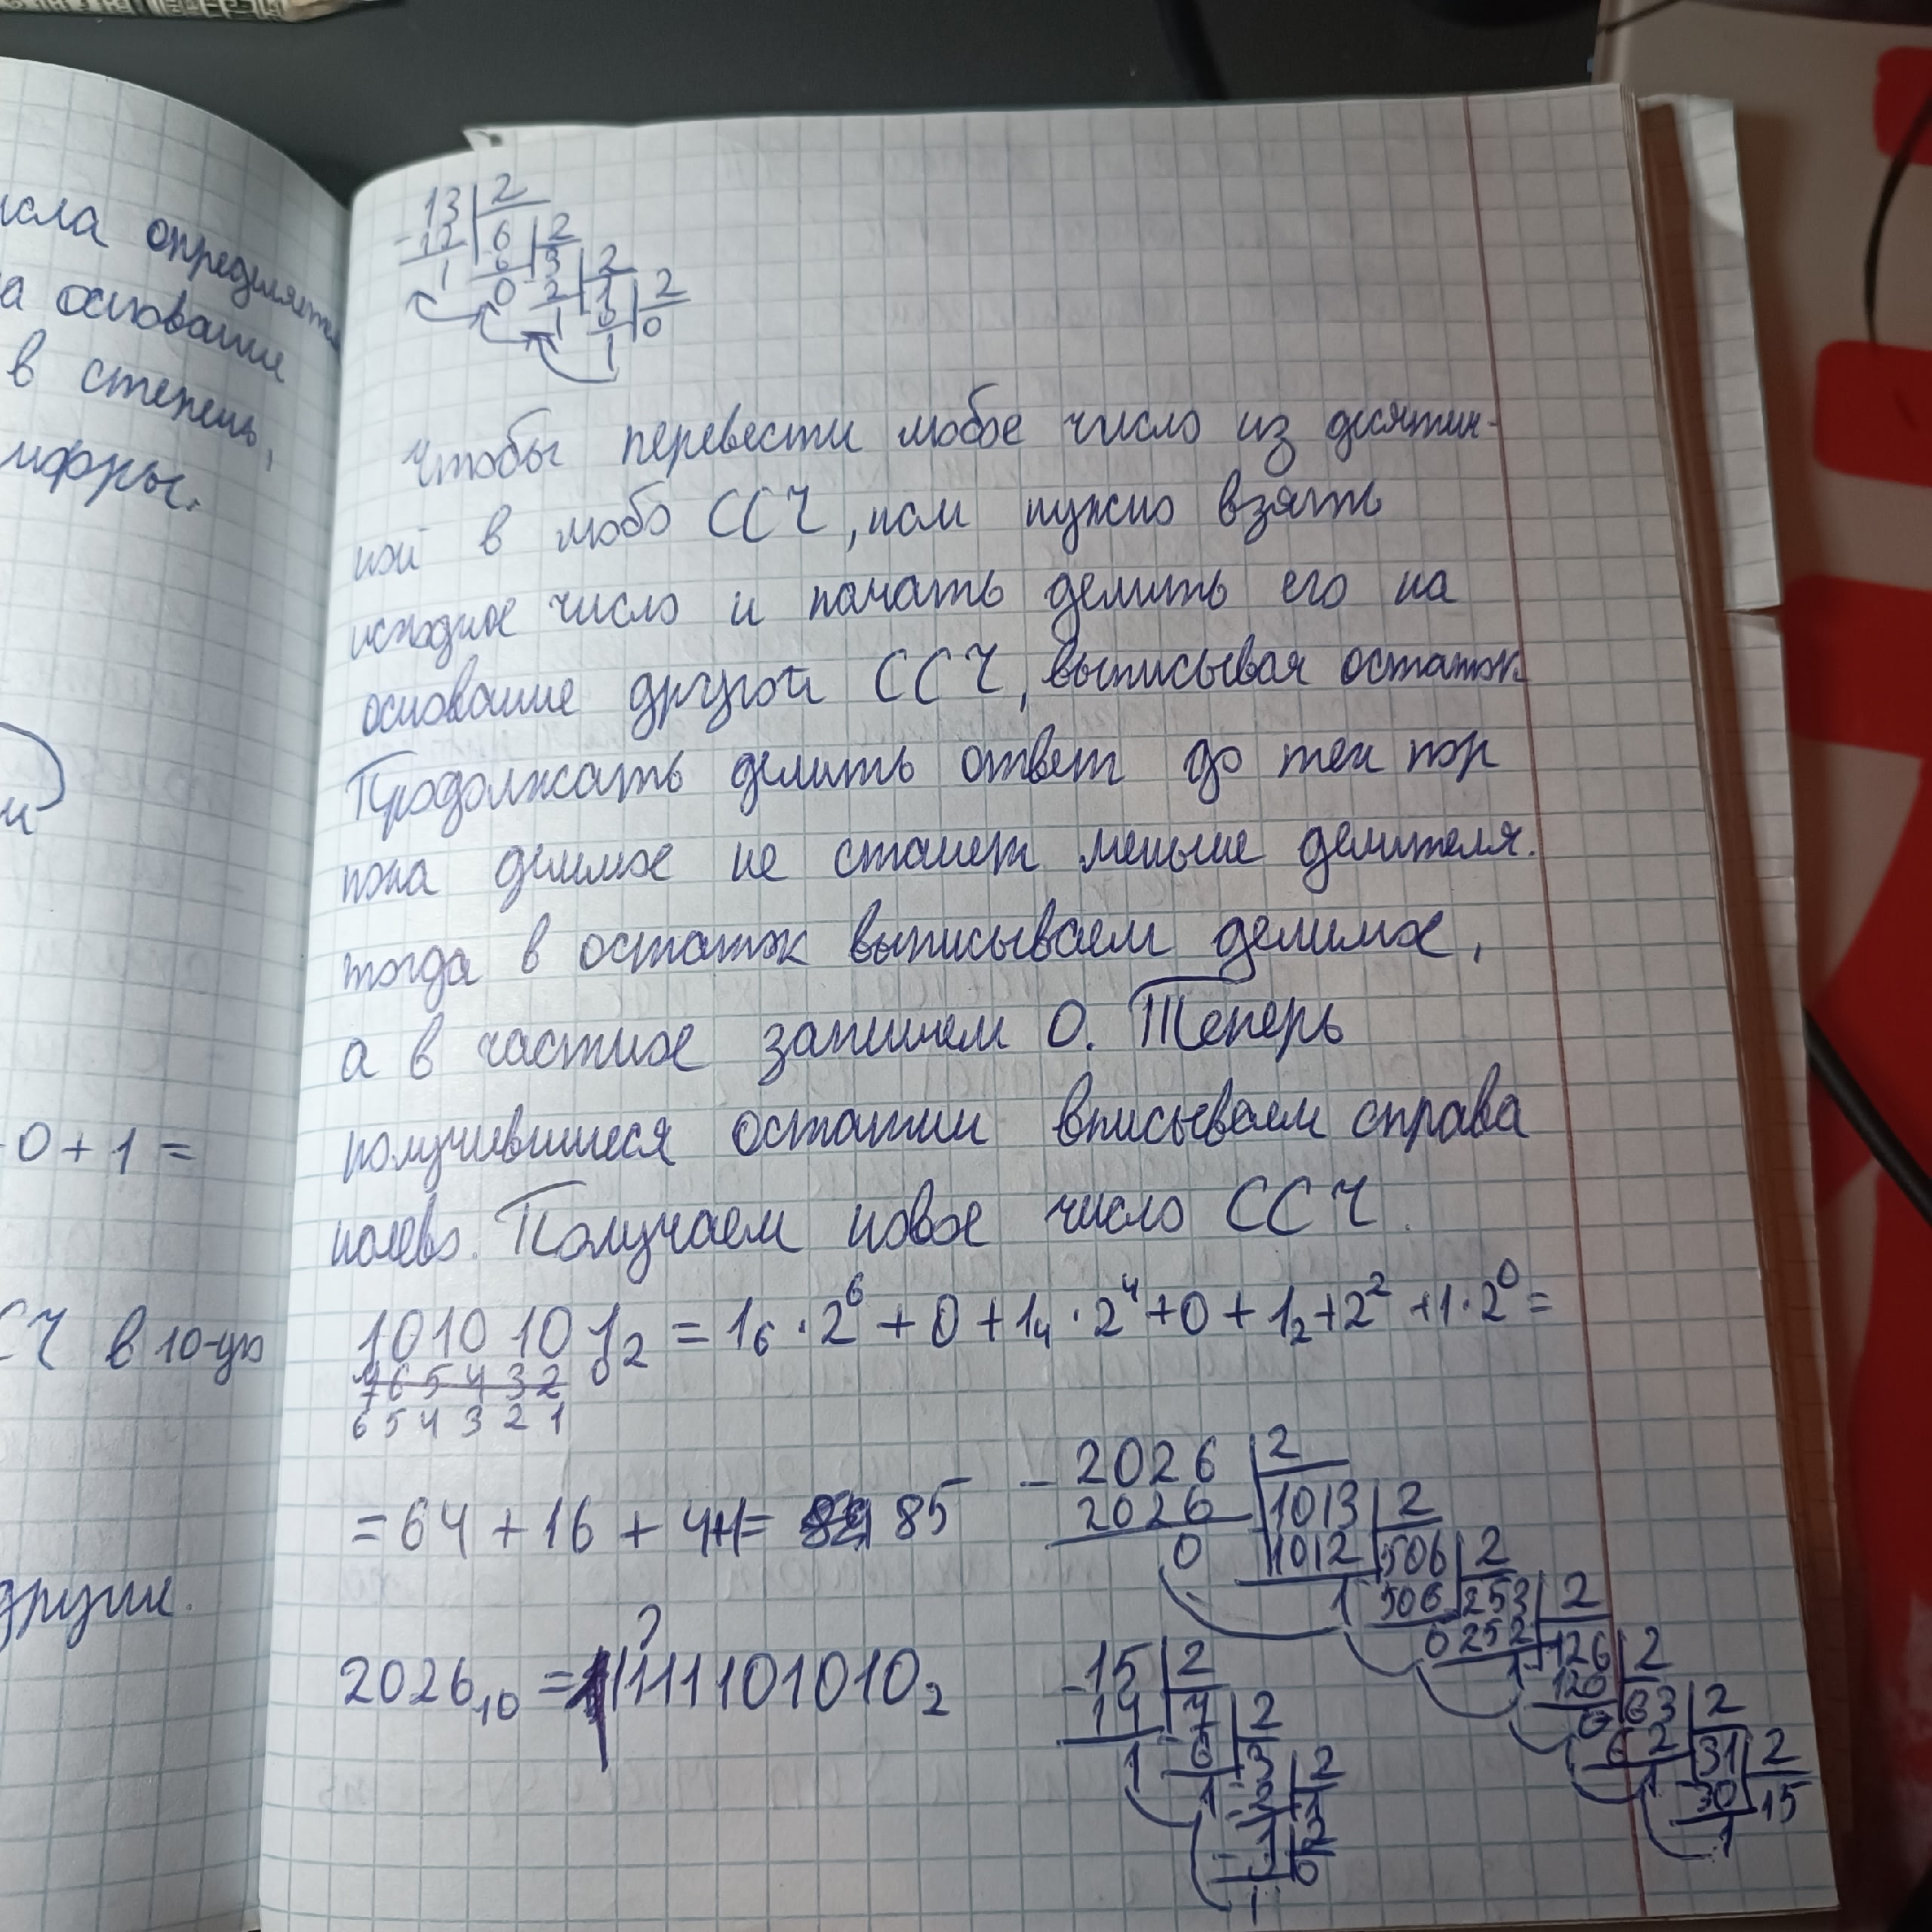 исла определяется
а основание
в степень,
ифры.
и
0 + 1 =
СЧ в 10-ую
другие.
13 | 2
- 12 | 6 | 2
1 6 | 3 | 2
0 2 | 1 | 2
1 0 | 0
1
Чтобы перевести любое число из десятич-
ной в любо ССЧ, нам нужно взять
исходное число и начать делить его на
основание другой ССЧ, выписывая остаток.
Продолжать делить ответ до тех пор
пока делимое не станет меньше делителя.
тогда в остаток выписываем делимое,
а в частное запишем 0. Теперь
получившиеся остатки вписываем справа
налево. Получаем новое число ССЧ.
1010101₂ = 1₆ · 2⁶ + 0 + 1₄ · 2⁴ + 0 + 1₂ + 2² + 1 · 2⁰ =
7 6 5 4 3 2 0
6 5 4 3 2 1
= 64 + 16 + 4 + 1 = 85
?
2026₁₀ = 11111101010₂
- 2026 | 2
2026 | 1013 | 2
0 1012 | 506 | 2
1 506 | 253 | 2
0 252 | 126 | 2
1 126 | 63 | 2
0 62 | 31 | 2
1 30 | 15
1
- 15 | 2
14 | 7 | 2
1 6 | 3 | 2
1 - 2 | 1
- 1 | 2
0 | 0
1